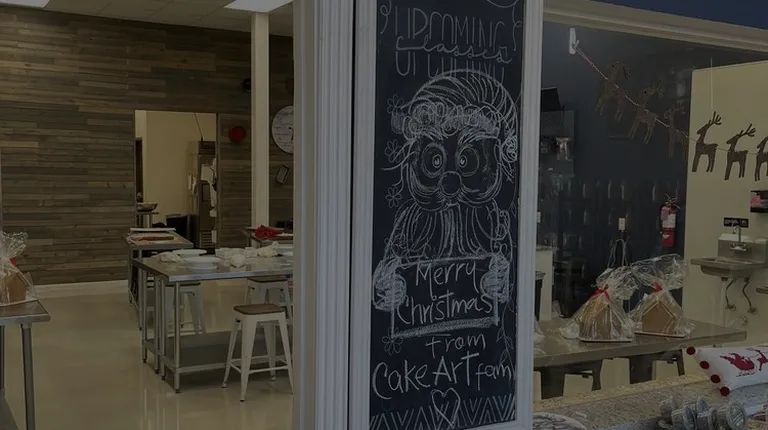 UPCOMING
classes
Merry
Christmas
from
Cake Art fam